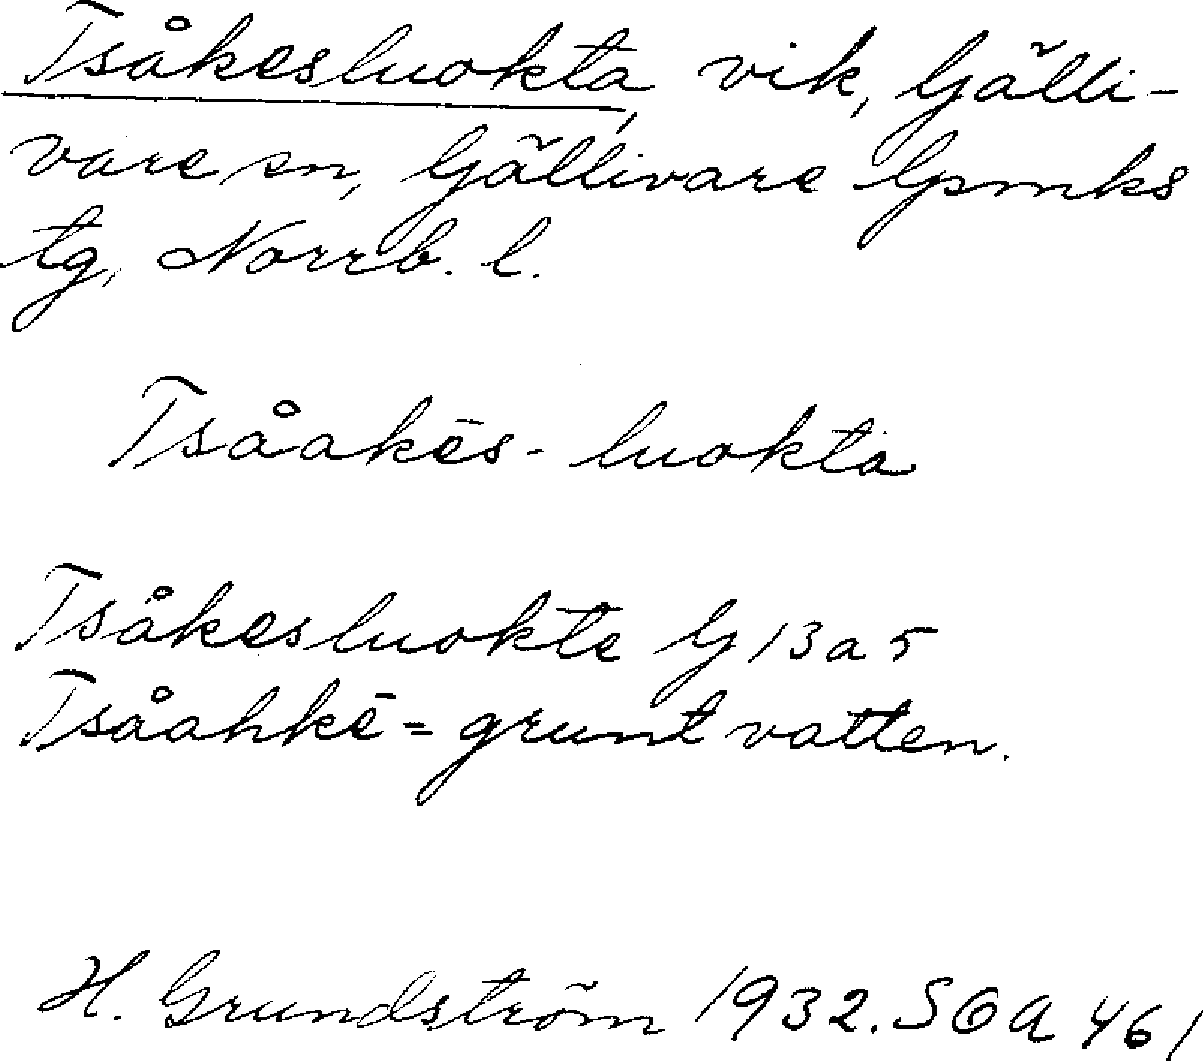 Tsåkesluokta, vik, Gälli-
vare sn, Gällivare lpmks
tg, Norrb. l.
Tsåakēs- luokta
Tsåkesluokte G 13 a 5
Tsåahkē = grunt vatten.
H. Grundström 1932. SOA 461